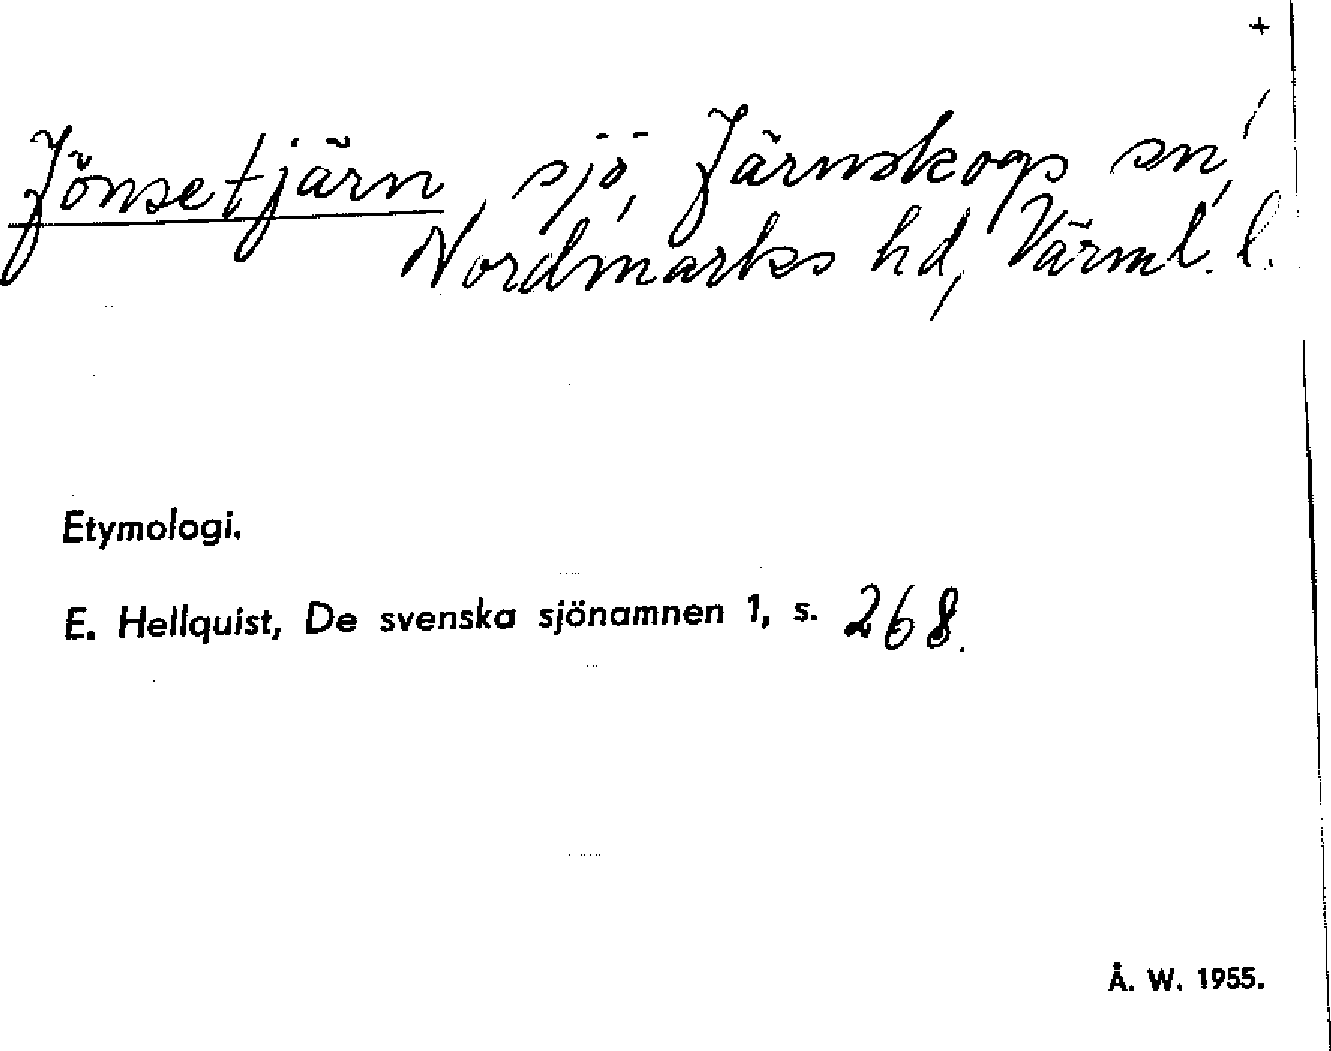 +
Jönsetjärn, sjö, Järnskogs sn,
Nordmarks hd, Värml. l.
Etymologi.
E. Hellquist, De svenska sjönamnen 1, s. 268.
Å. W. 1955.